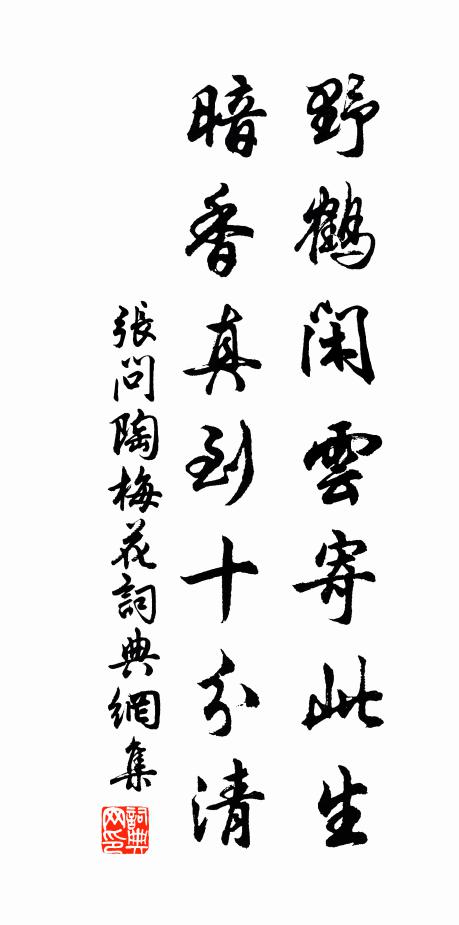 野鶴閑雲寄此生
暗香真到十分清
張問陶梅花詞典網集
詞典网印